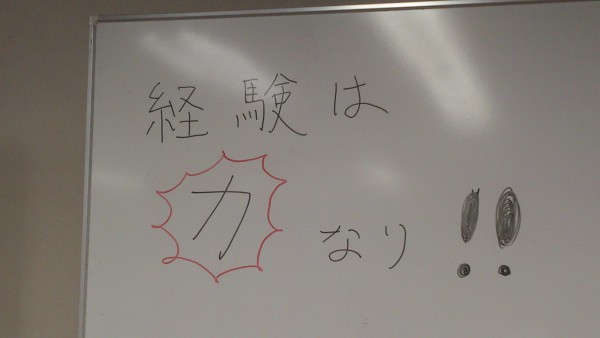 経験は
力なり!!